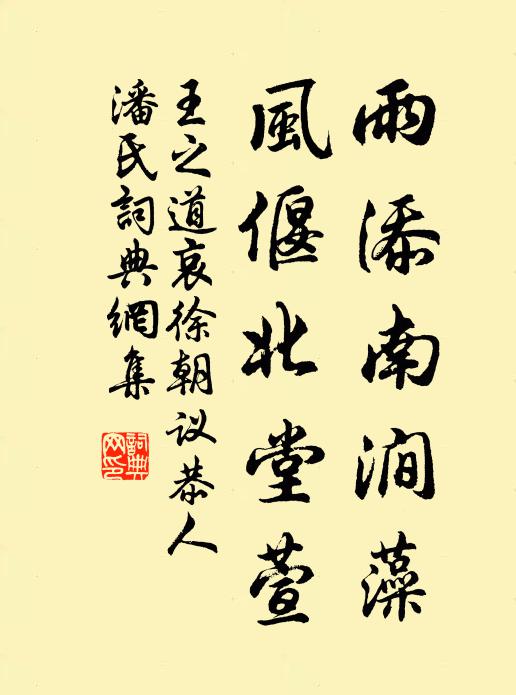 雨添南澗藻
風偃北堂萱
王之道哀徐朝议恭人
潘氏詞典網集
詞典网印